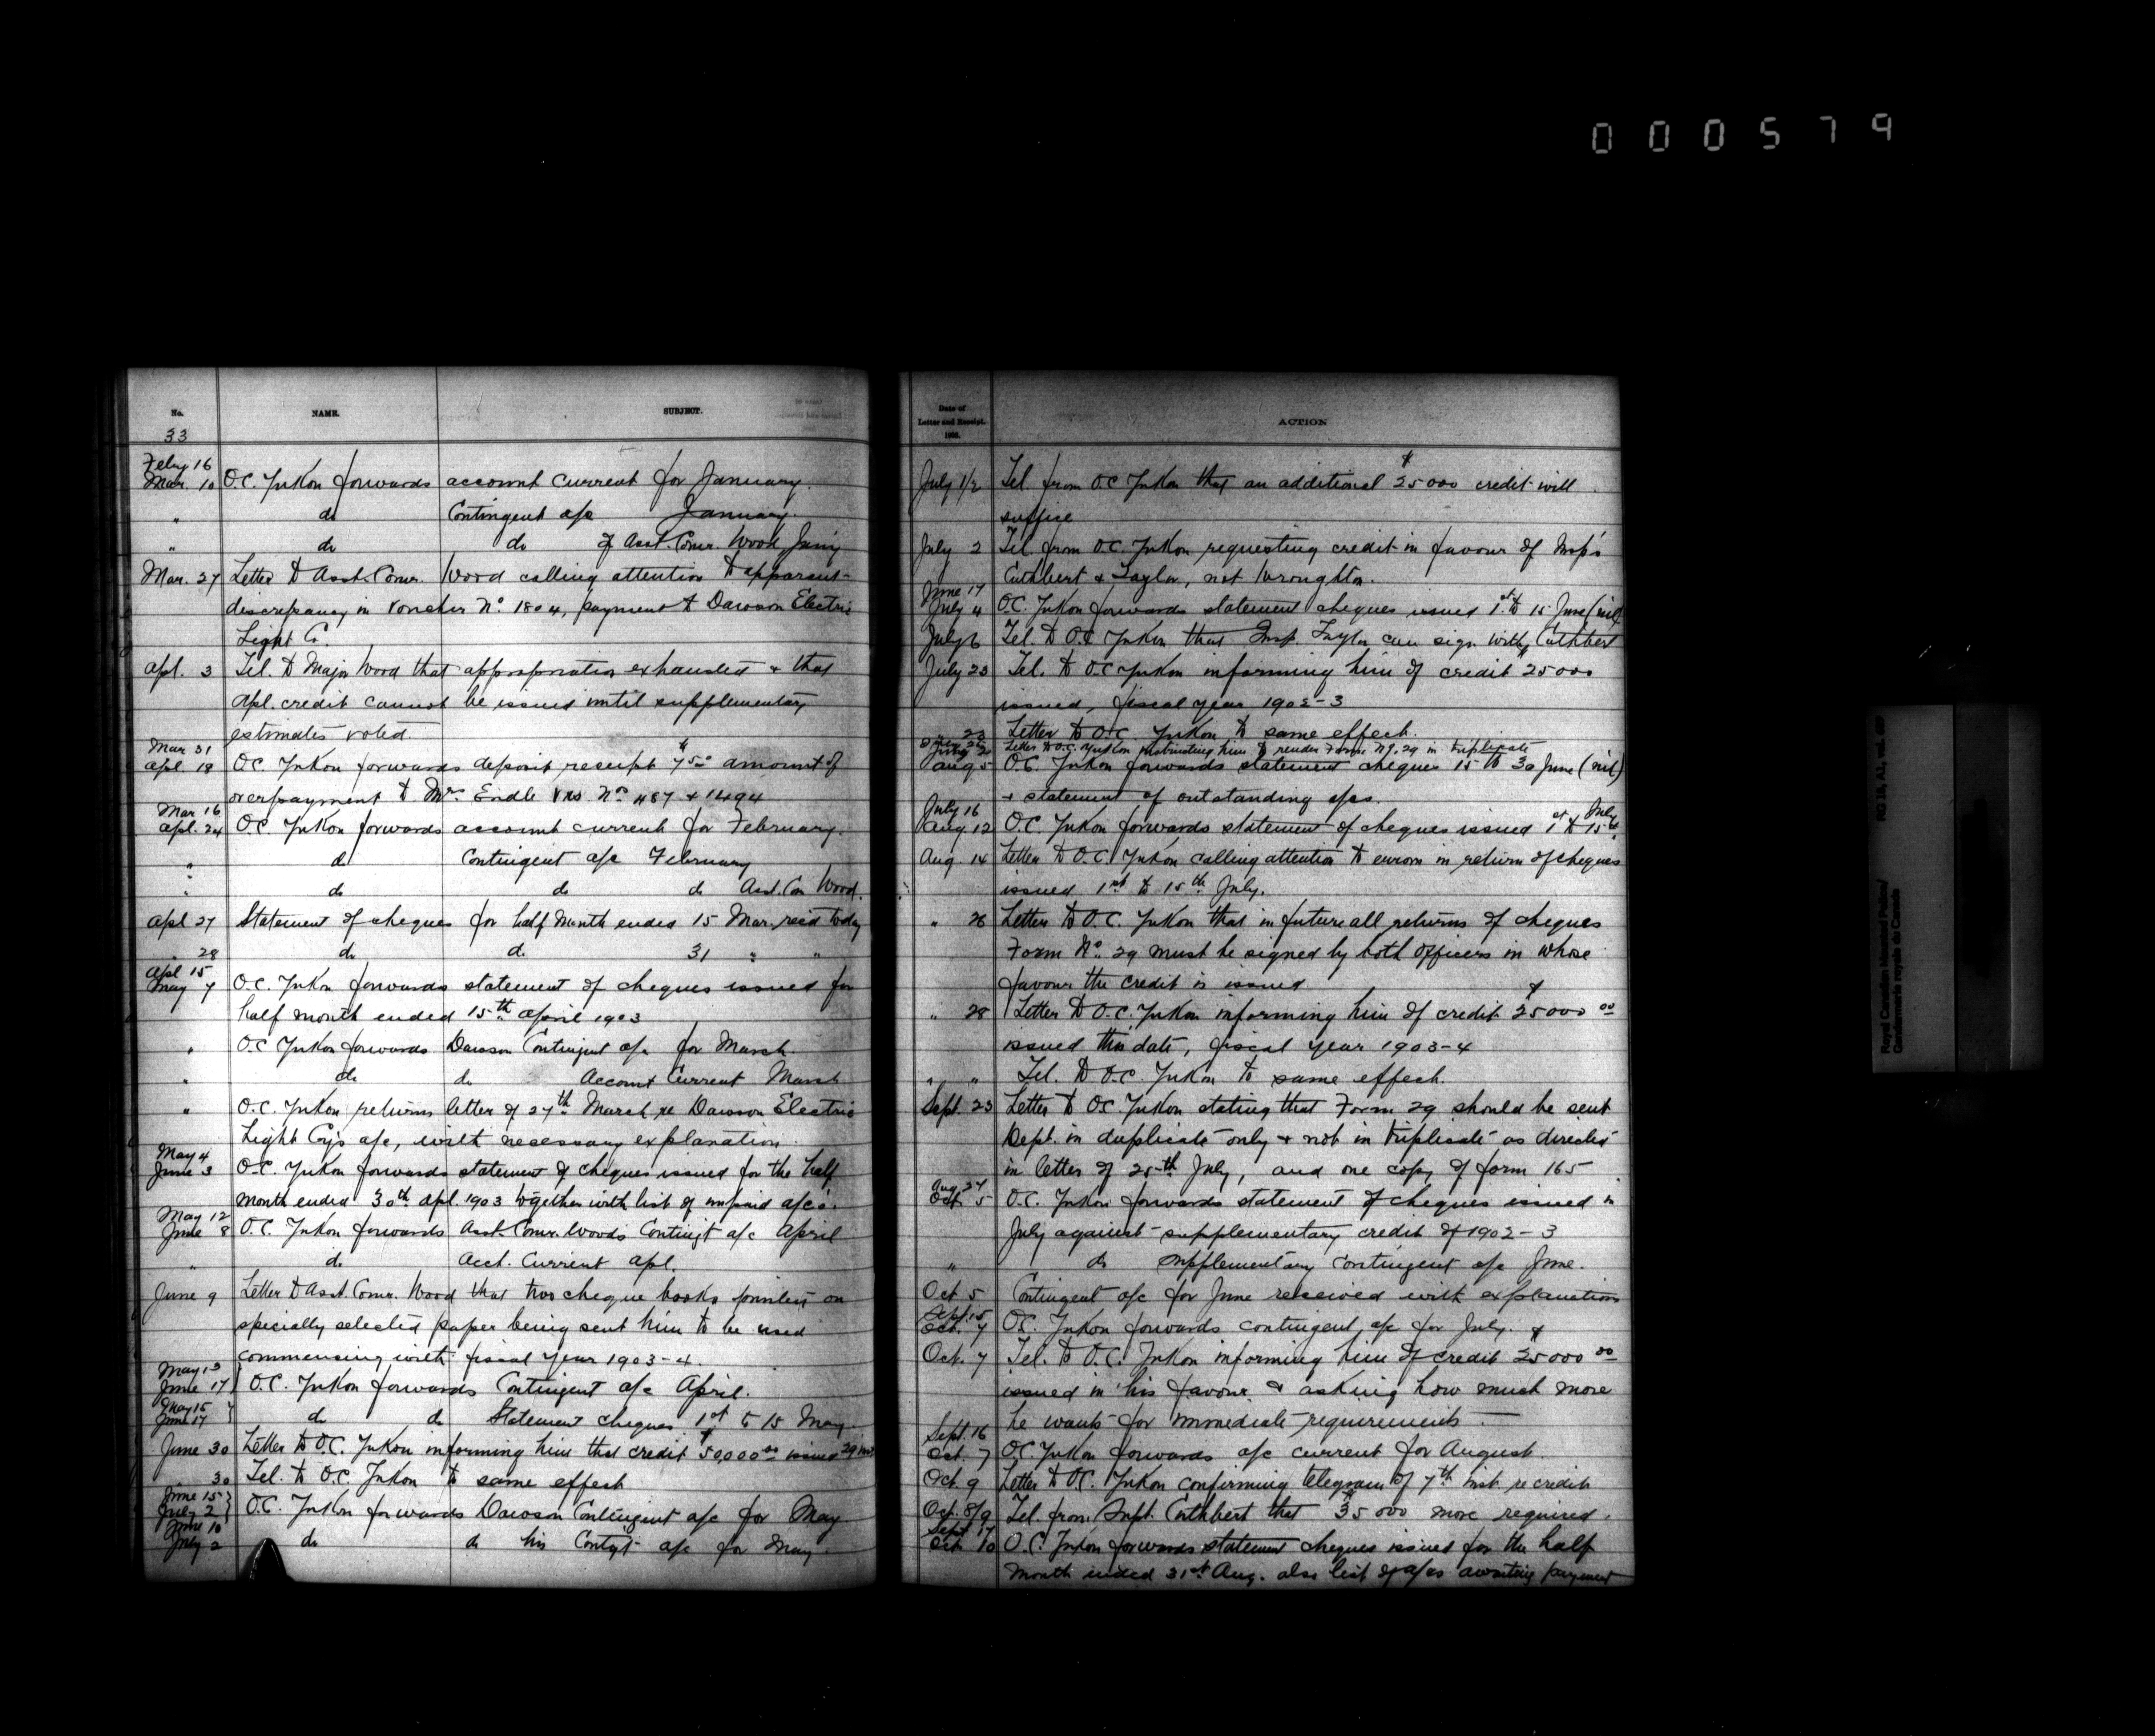 000579
No. NAME. SUBJECT.
33
Feby 16
Mar. 10 O.C. Yukon forwards account current for January.
" do Contingent a/c January.
" do do of Asst. Comr. Wood Jan'y
Mar. 27 Letter to Asst. Comr. Wood calling attention to apparent
discrepancy in voucher No. 1804, payment to Dawson Electric
Light Co.
Apl. 3 Tel. to Major Wood that appropriation exhausted & that
Apl. credit cannot be issued until supplementary
estimates voted.
Mar 31
Apl. 18 O.C. Yukon forwards deposit receipt $7.50 amount of
overpayment to Mr. Endle vrs Nos 487 & 1494
Mar 16
Apl. 24 O.C. Yukon forwards account current for February.
" do Contingent a/c February
" do do do Asst. Com Wood.
Apl 27 Statement of cheques for half month ended 15 Mar. rec'd today
" 28 do do 31 " "
Apl 15
May 7 O.C. Yukon forwards statement of cheques issued for
half month ended 15th April 1903
" O.C. Yukon forwards Dawson Contingent a/c for March.
" do do Account Current March
" O.C. Yukon returns letter of 27th March, re Dawson Electric
Light Coy's a/c, with necessary explanation.
May 4
June 3 O.C. Yukon forwards statement of cheques issued for the half
month ended 30th Apl. 1903 together with list of unpaid a/cs.
May 12
June 8 O.C. Yukon forwards Asst. Comr. Woods Contingt a/c April
" do Acct. Current Apl.
June 9 Letter to Asst. Comr. Wood that two cheque books printed on
specially selected paper being sent him to be used
commencing with fiscal year 1903-4.
May 13
June 17 O.C. Yukon forwards Contingent a/c April.
May 15
June 17 do do Statement cheques 1st to 15 May.
June 30 Letter to O.C. Yukon informing him that credit $50,000.00 issued 29 inst
" 30 Tel. to O.C. Yukon to same effect
June 15
July 2 O.C. Yukon forwards Dawson Contingent a/c for May
June 10
July 2 do do his Contgt a/c for May.
Date of Letter and Receipt. ACTION
July 1/2 Tel. from O.C. Yukon that an additional $25000 credit will
suffice
July 2 Tel. from O.C. Yukon requesting credit in favour of Insp's
Cuthbert & Taylor, not Wroughton.
June 17
July 4 O.C. Yukon forwards statement cheques issued 1st to 15 June (nil)
July 6 Tel. to O.C. Yukon that Insp. Taylor can sign with Cuthbert
July 23 Tel. to O.C. Yukon informing him of credit $25000
issued, fiscal year 1902-3
" 23 Letter to O.C. Yukon to same effect.
Letter to O.C. Yukon instructing him to render Form No. 29 in triplicate
Aug 5 O.C. Yukon forwards statement cheques 15 to 30 June (nil)
& statement of outstanding a/cs.
July 16
Aug 12 O.C. Yukon forwards statement of cheques issued 1st to 15th July
Aug. 14 Letter to O.C. Yukon calling attention to errors in return of cheques
issued 1st to 15th July.
" 26 Letter to O.C. Yukon that in future all returns of cheques
Form No. 29 must be signed by both officers in whose
favour the credit is issued
" 28 Letter to O.C. Yukon informing him of credit $25000.00
issued this date, fiscal year 1903-4
" " Tel. to O.C. Yukon to same effect.
Sept. 23 Letter to O.C. Yukon stating that Form 29 should be sent
Dept. in duplicate only & not in triplicate as directed
in letter of 25th July, and one copy of form 165
Aug 27
Oct. 5 O.C. Yukon forwards statement of cheques issued in
July against supplementary credit of 1902-3
" do supplementary contingent a/c June.
Oct 5 Contingent a/c for June received with explanations
Sept. 15
Oct. 7 O.C. Yukon forwards contingent a/c for July.
Oct. 7 Tel. to O.C. Yukon informing him of credit $25000.00
issued in his favour & asking how much more
he wants for immediate requirements.
Sept. 16
Oct. 7 O.C. Yukon forwards a/c current for August.
Oct. 9 Letter to O.C. Yukon confirming telegram of 7th inst. re credit
Oct. 8/9 Tel. from Supt. Cuthbert that $35000 more required.
Sept. 17
Oct. 10 O.C. Yukon forwards statement cheques issued for the half
month ended 31st Aug. also list of a/cs awaiting payment
Royal Canadian Mounted Police/
Gendarmerie royale du Canada
RG 18, A1, vol.